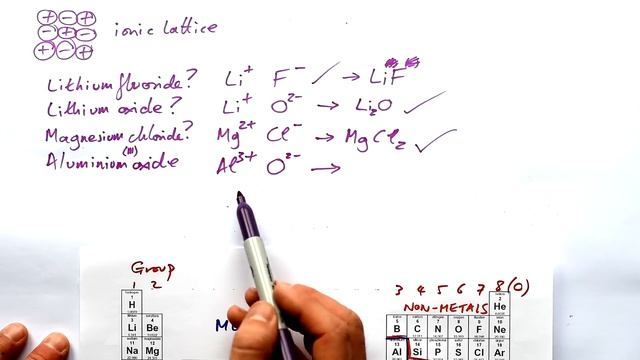 + - +
- + -
+ - +
ionic lattice
Lithium fluoride? Li⁺ F⁻ ✓ → LiF
Lithium oxide? Li⁺ O²⁻ → Li₂O ✓
Magnesium chloride? Mg²⁺ Cl⁻ → MgCl₂ ✓
Aluminium (III) oxide Al³⁺ O²⁻ →
Group
1 2
3 4 5 6 7 8(0)
NON-METALS
H He
Li Be B C N O F Ne
Na Mg Al Si P S Cl Ar